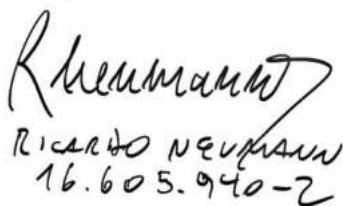 Rneumann
RICARDO NEUMANN
16.605.940-2